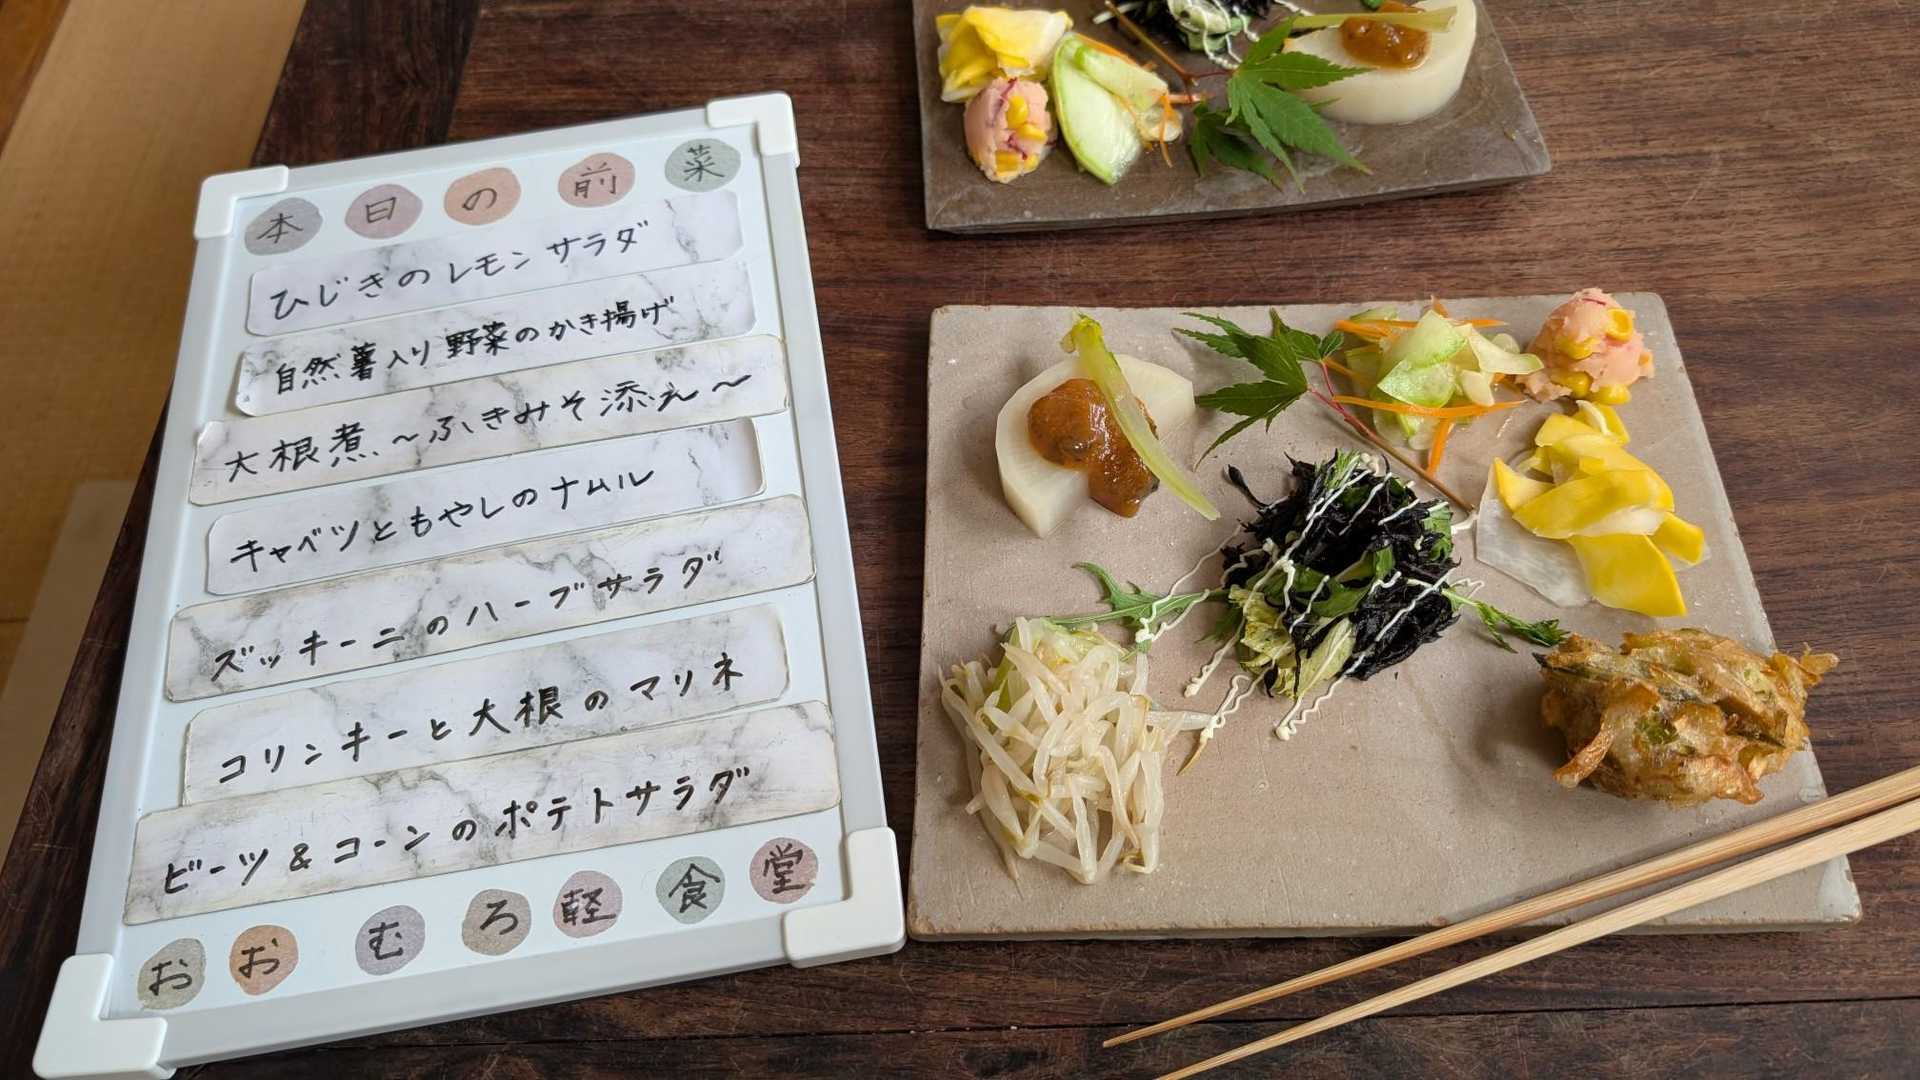 本日の前菜
ひじきのレモンサラダ
自然薯入り野菜のかき揚げ
大根煮～ふきみそ添え～
キャベツともやしのナムル
ズッキーニのハーブサラダ
コリンキーと大根のマリネ
ビーツ&コーンのポテトサラダ
おおむろ軽食堂